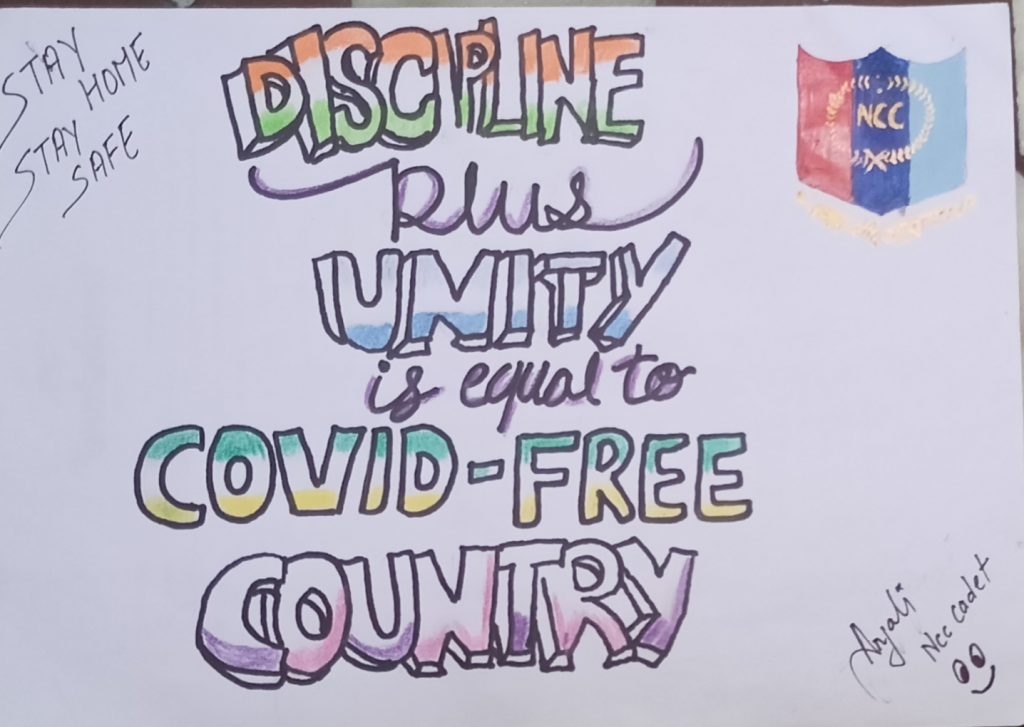 STAY
HOME
STAY
SAFE
DISCIPLINE
plus
UNITY
is equal to
COVID-FREE
COUNTRY
NCC
Anjali
NCC cadet